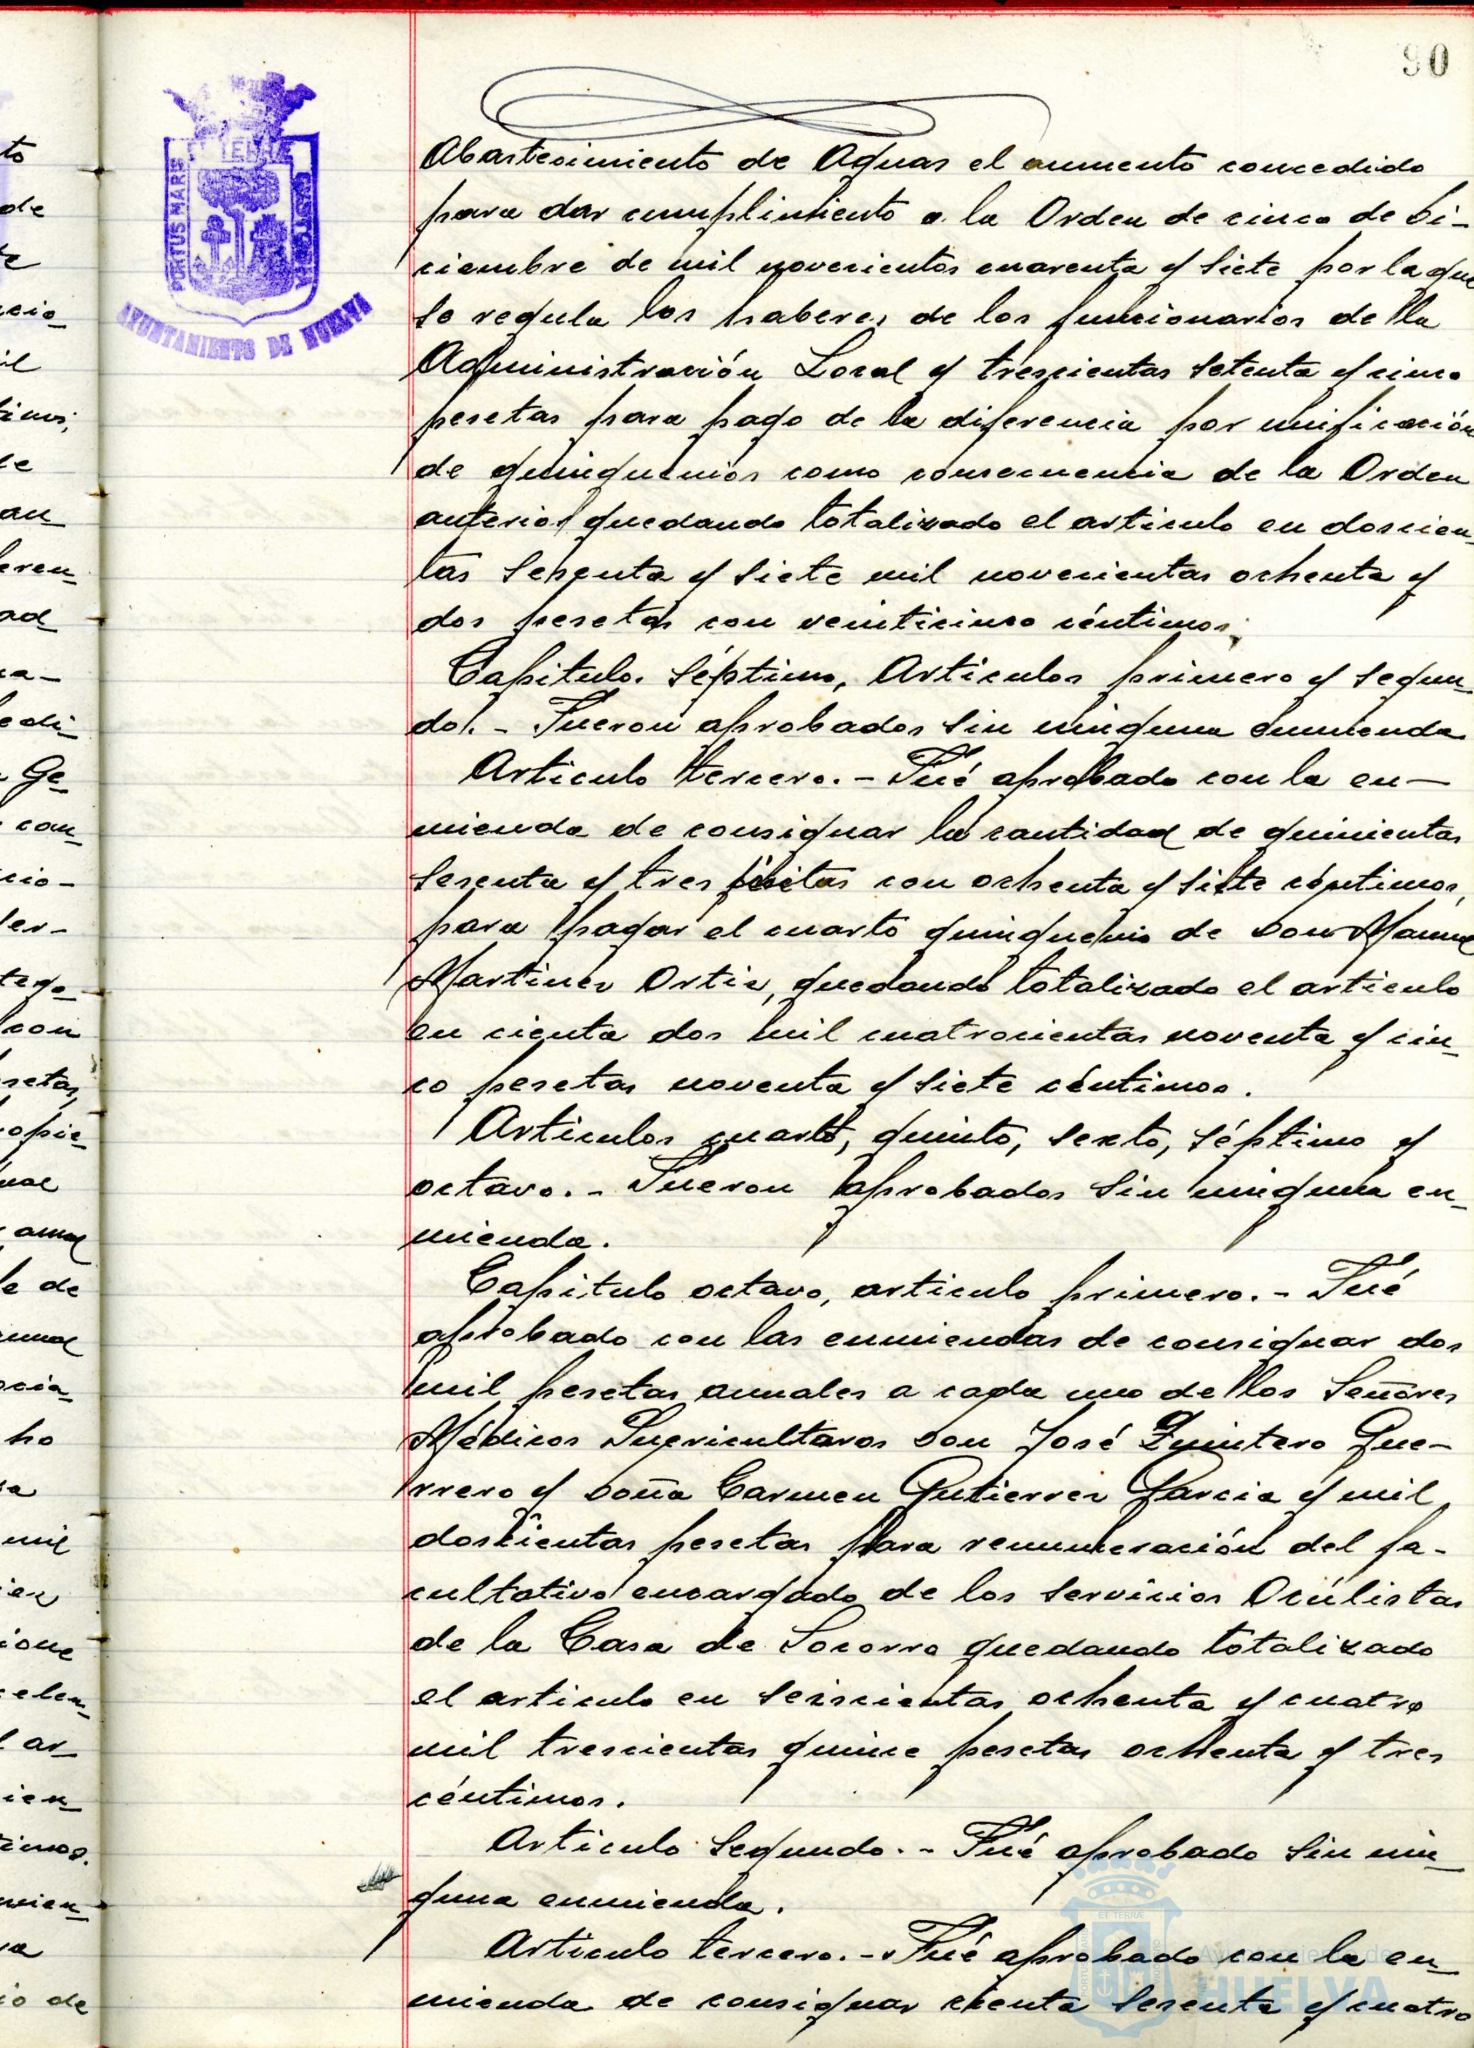 90
PORTUS MARIS
ET TERRAE
CUSTODIA
AYUNTAMIENTO DE HUELVA
Abastecimiento de Aguas el aumento concedido
para dar cumplimiento a la Orden de cinco de Di-
ciembre de mil novecientos cuarenta y siete por la que
se regula los haberes de los funcionarios de la
Administración Local y trescientas setenta y cinco
pesetas para pago de la diferencia por unificación
de quinquenios como consecuencia de la Orden
anterior quedando totalizado el articulo en doscien-
tas sesenta y siete mil novecientas ochenta y
dos pesetas con veinticinco céntimos.
Capitulo. Séptimo, Articulos primero y segun-
do. - Fueron aprobados sin ninguna enmienda
Articulo tercero. - Fué aprobado con la en-
mienda de consignar la cantidad de quinientas
sesenta y tres con ochenta y siete céntimos,
para pagar el cuarto quinquenio de Don Manuel
Martinez Ortiz, quedando totalizado el articulo
en cienta dos mil cuatrocientas noventa y cin-
co pesetas noventa y siete céntimos.
Articulos cuarto, quinto, sexto, séptimo y
octavo. - Fueron aprobados sin ninguna en-
mienda.
Capitulo octavo, articulo primero. - Fué
aprobado con las enmiendas de consignar dos
mil pesetas anuales a cada uno de los Señores
Médicos Puericultores Don José Quintero Gue-
rrero y Doña Carmen Gutierrez Garcia y mil
doscientas pesetas para remuneración del fa-
cultativo encargado de los servicios Oculistas
de la Casa de Socorro quedando totalizado
el articulo en seiscientas ochenta y cuatro
mil trescientas quince pesetas ochenta y tres
céntimos.
Articulo segundo. - Fué aprobado sin nin-
guna enmienda.
Articulo tercero. - Fué aprobado con la en-
mienda de consignar cienta sesenta y cuatro
Ayuntamiento de
HUELVA